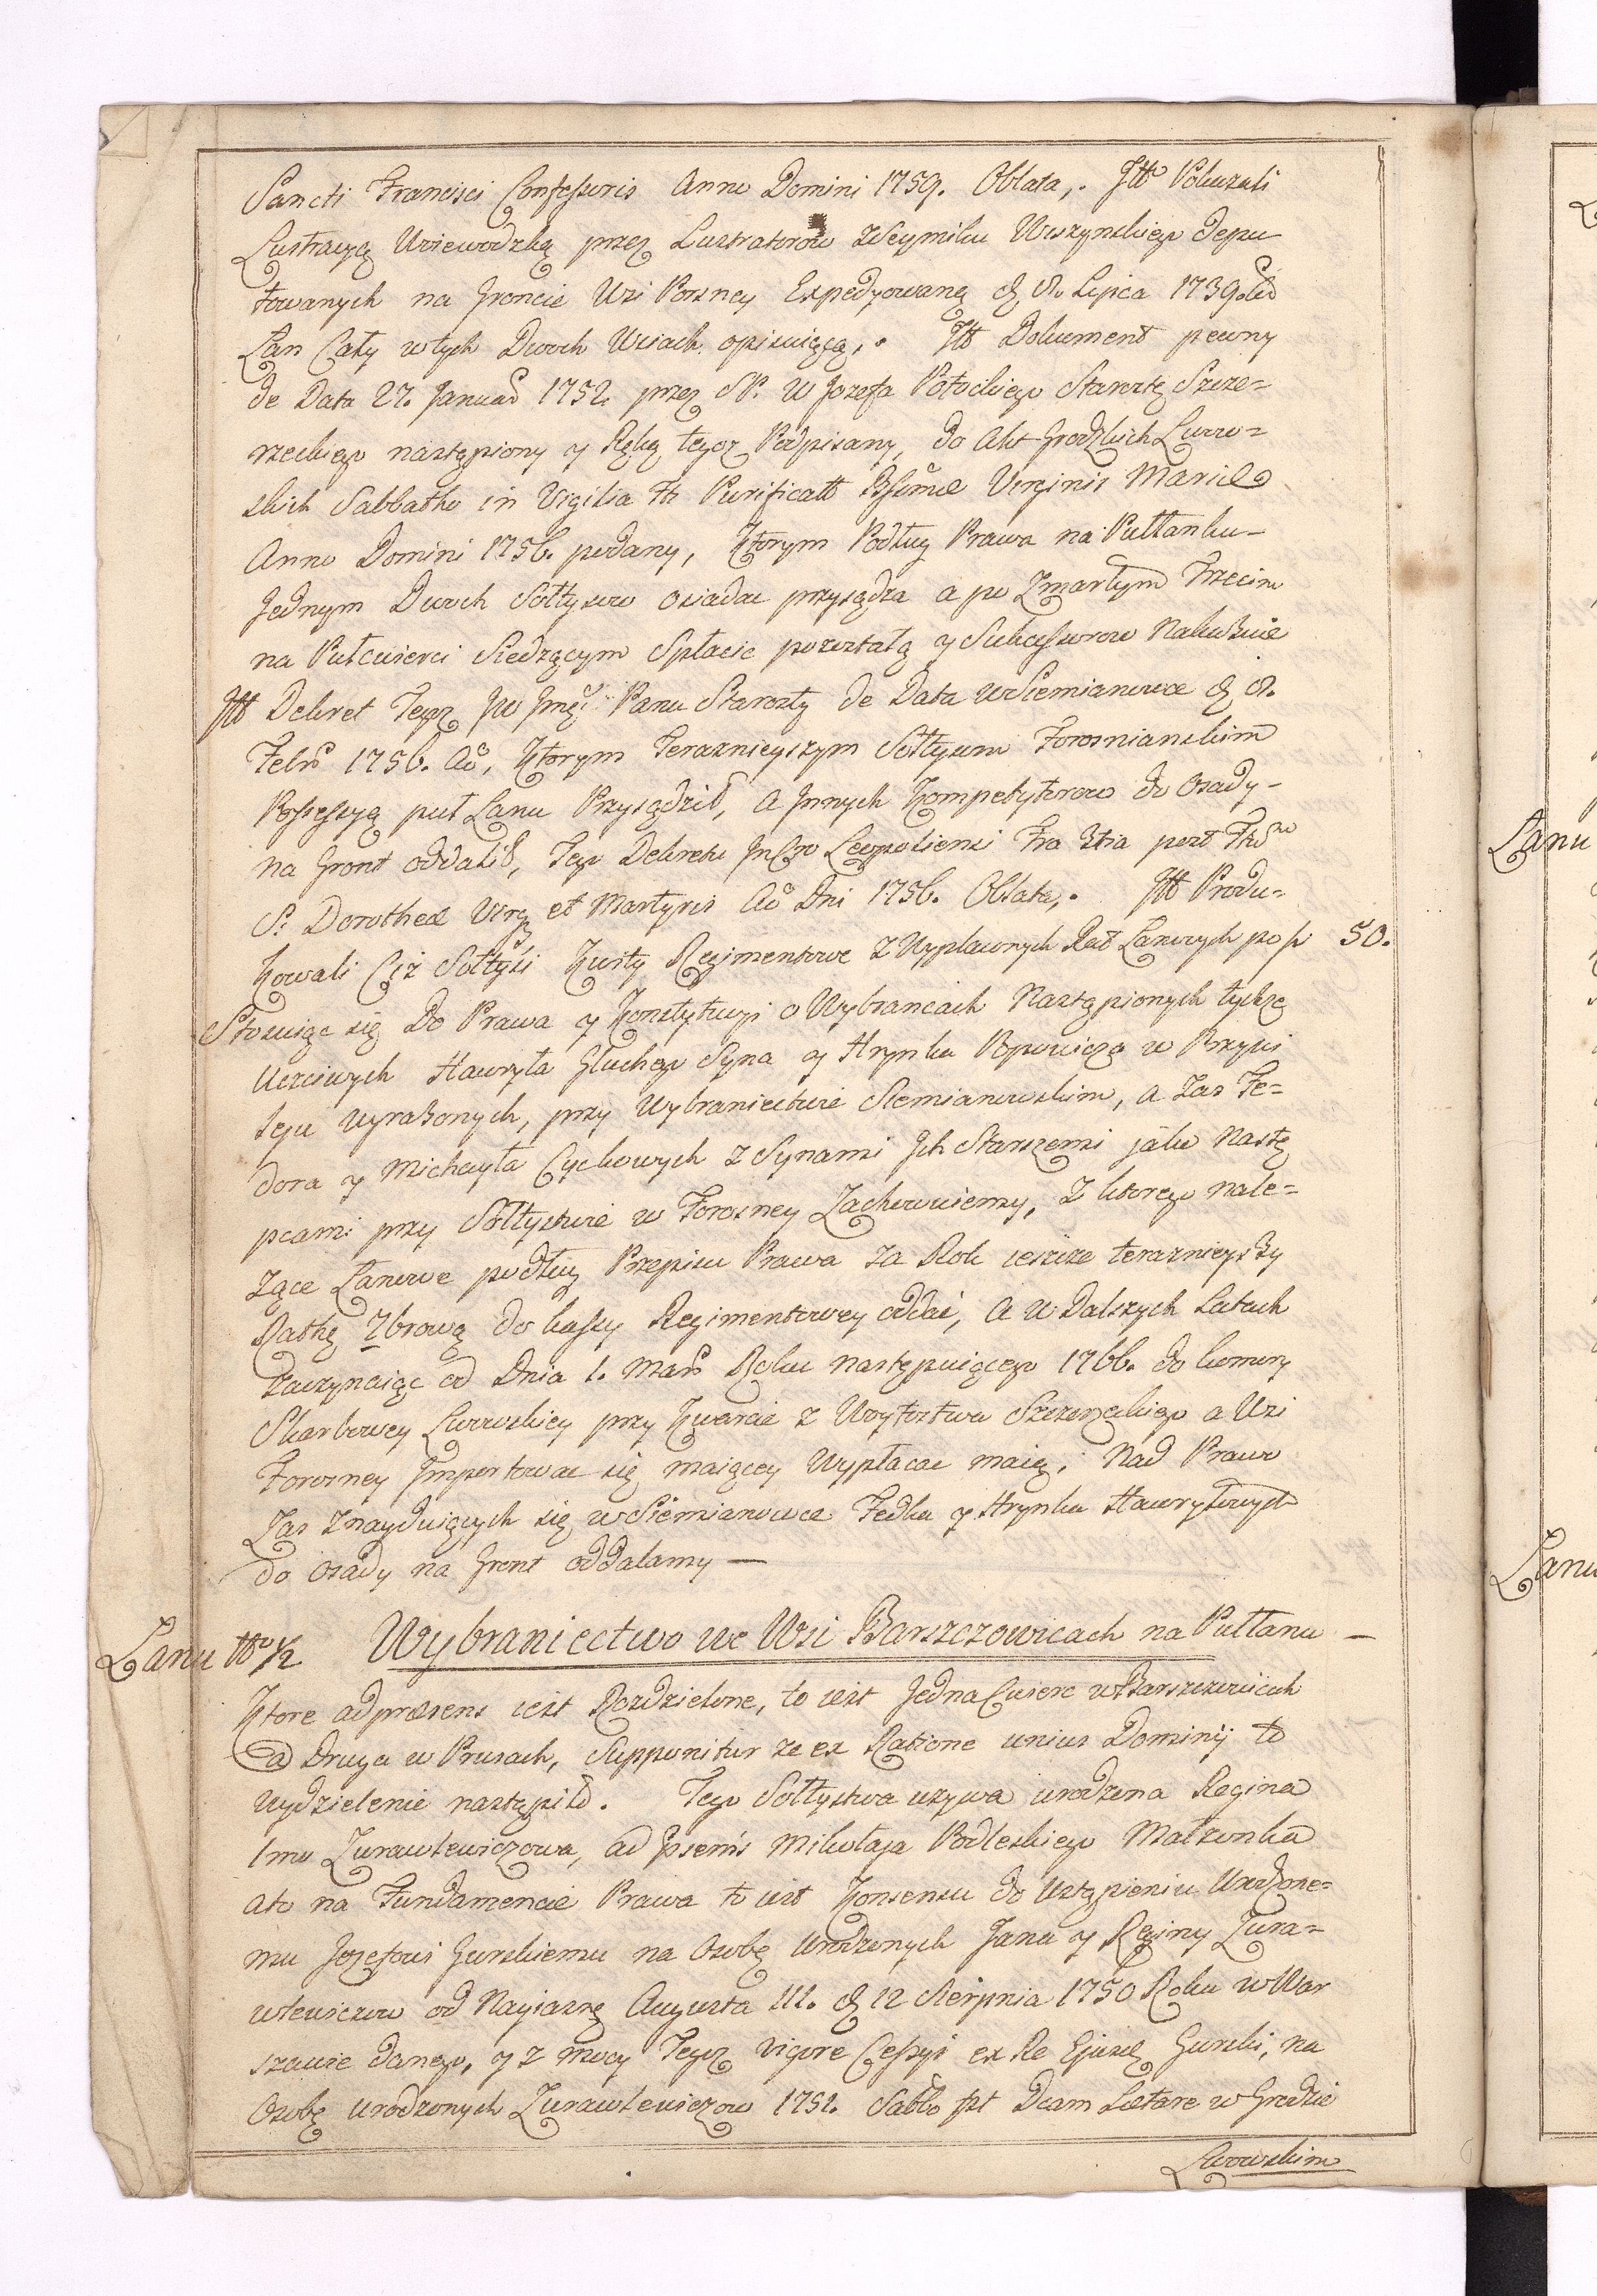 Sancti Francisci Confessoris Anno Domini 1759. Oblata,. Itto Pokazali
Lustracyą Woiewodzką przez Lustratorow z Seymiku Wiszynskiego Depu-
towanych na Groncie Wsi Porszney Expedyowaną 1739.
Łan Cały w tych Dwoch Wsiach opisuiącą,. Itt Dokument pewny
de Data 27. Januar 1752. przez SP. W Jozefa Potockiego Starostę Szcze=
rzeckiego nastąpiony y Ręką tegoz Podpisany, do Akt Grodzkich Lwow=
skich Sabbatho in Vigilia Purificatt Virginis Mariae
Anno Domini 1756. podany, Ktorym Podług Prawa na Pułłanku-
Jednym Dwoch Sołtysow osiadac przysądza a po Zmarłym Trzecim
na Pułcwierci Siedzącym Spłacic pozostałą y Sukcessorow Nakaźuie
Itt Dekret Tegoz Jo Jmci Pana Starosty de Data w Siemianowce
Febr 1756. Ao, Ktorym Teraznieyszym Sołtysom Torosnianskim
Possessyą puł Łanu Przysądził, a Jnnych Kompetytorow do Osady-
na Gront oddalił, Tego Dekretu Leopoliensi post
S. Dorotheae Virg et Martyris Ao Dni 1756. Oblata,. Itt Produ=
kowali Ciż Sołtysi Kwity Regimentowe z Wypłaconych Rat Łanowych po 50.
Stosuiąc się Do Prawa y Konstytucyi o Wybrancach Nastąpionych tychże
Uczciwych Hawryła Głuchego Syna y Hrynka Popowicza w Przywi
leju wyrażonych, przy Wybraniectwie Siemianowskim, a zas Fe=
dora y Michayła Cyckowych z Synami Jch Starszemi jako Nastę
pcami przy Sołtystwie w Torosney Zachowuiemy, z ktorego nale=
żące Łanowe podług Przepisu Prawa za Rok ieszcze teraznieyszy
Rathę do kassy Regimentowey oddać, a w Dalszych Latach
zaczynaiąc od Dnia 1. Mar Roku następuiącego 1766. do komory
Skarbowey Lwowskiey przy Kwarcie z Woytostwa Szczerzeckiego a Wsi
Torosney Jmportowac się maiącey Wypłacac maią; Nad Prawo
Zas znayduiących się w Siemianowce Fedka y Hrynka Hawryłowych
do osady na Gront oddalamy —
Łanu No ½ Wybraniectwo we Wsi Barszczowicach na Pułłanu —
Ktore ad praesens iest Rozdzielone, to iest Jedna Cwierc w Barszczowicach
a Druga w Prusach, Supponitur że ex Ratione unius Dominij to
wydzielenie nastąpiło. Tego Sołtystwa używa urodzona Regina
1mo Zurawlewiczowa, ad Psens Mikołaja Podleskiego Małżonka
a to na Fundamencie Prawa to iest Konsensu do Ustąpieniu Urodzone=
mu Jozefowi Gurskiemu na Osobę Urodzonych Jana y Reginy Zura=
wlewiczow od Nayiasnę Augusta III. 12 Sierpnia 1750 Roku w War
szawie danego, y z mocy Tegoz vigore Cessyi ex Re Ejusdę Gurski, na
Osobę urodzonych Zurawlewiczow 1751. Sabbo pst Dcam Laetare w Grodzie
Lwowskim